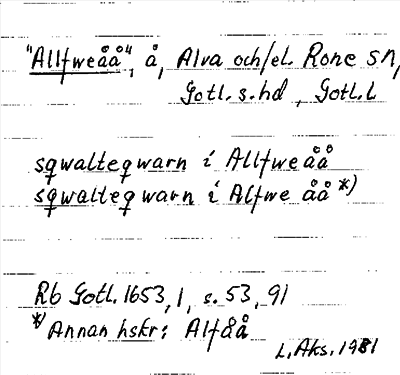 "Allfweåå", å, Alva och/el. Rone sn,
Gotl. s. hd, Gotl. L
sqwalteqwarn i Allfweåå
sqwalteqwarn i Alfwe åå *)
Rb Gotl. 1653, 1, s. 53, 91
*) Annan hskr: Alfåå
L. Aks. 1981